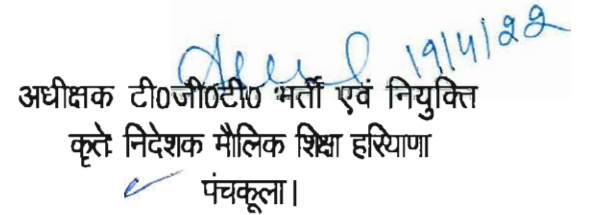 19/4/22
अधीक्षक टी0जी0टी0 भर्ती एवं नियुक्ति
कृतेः निदेशक मौलिक शिक्षा हरियाणा
पंचकूला।